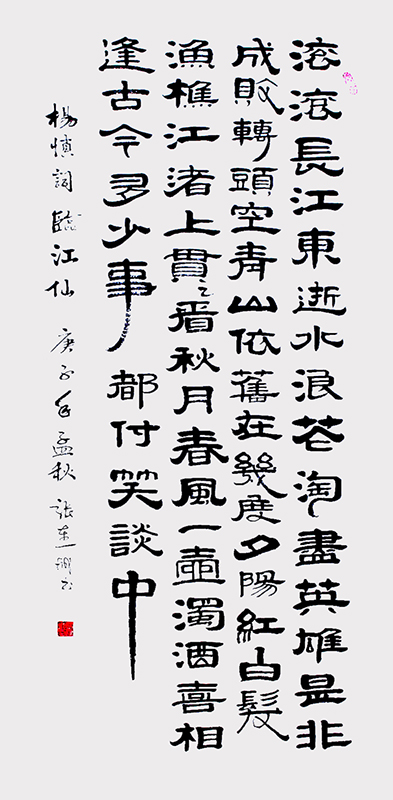 滚滚長江東逝水浪花淘盡英雄是非
成敗轉頭空青山依舊在幾度夕陽紅白髮
漁樵江渚上貫看秋月春風一壺濁酒喜相
逢古今多少事都付笑談中
楊慎詞臨江仙 庚子年孟秋 張书